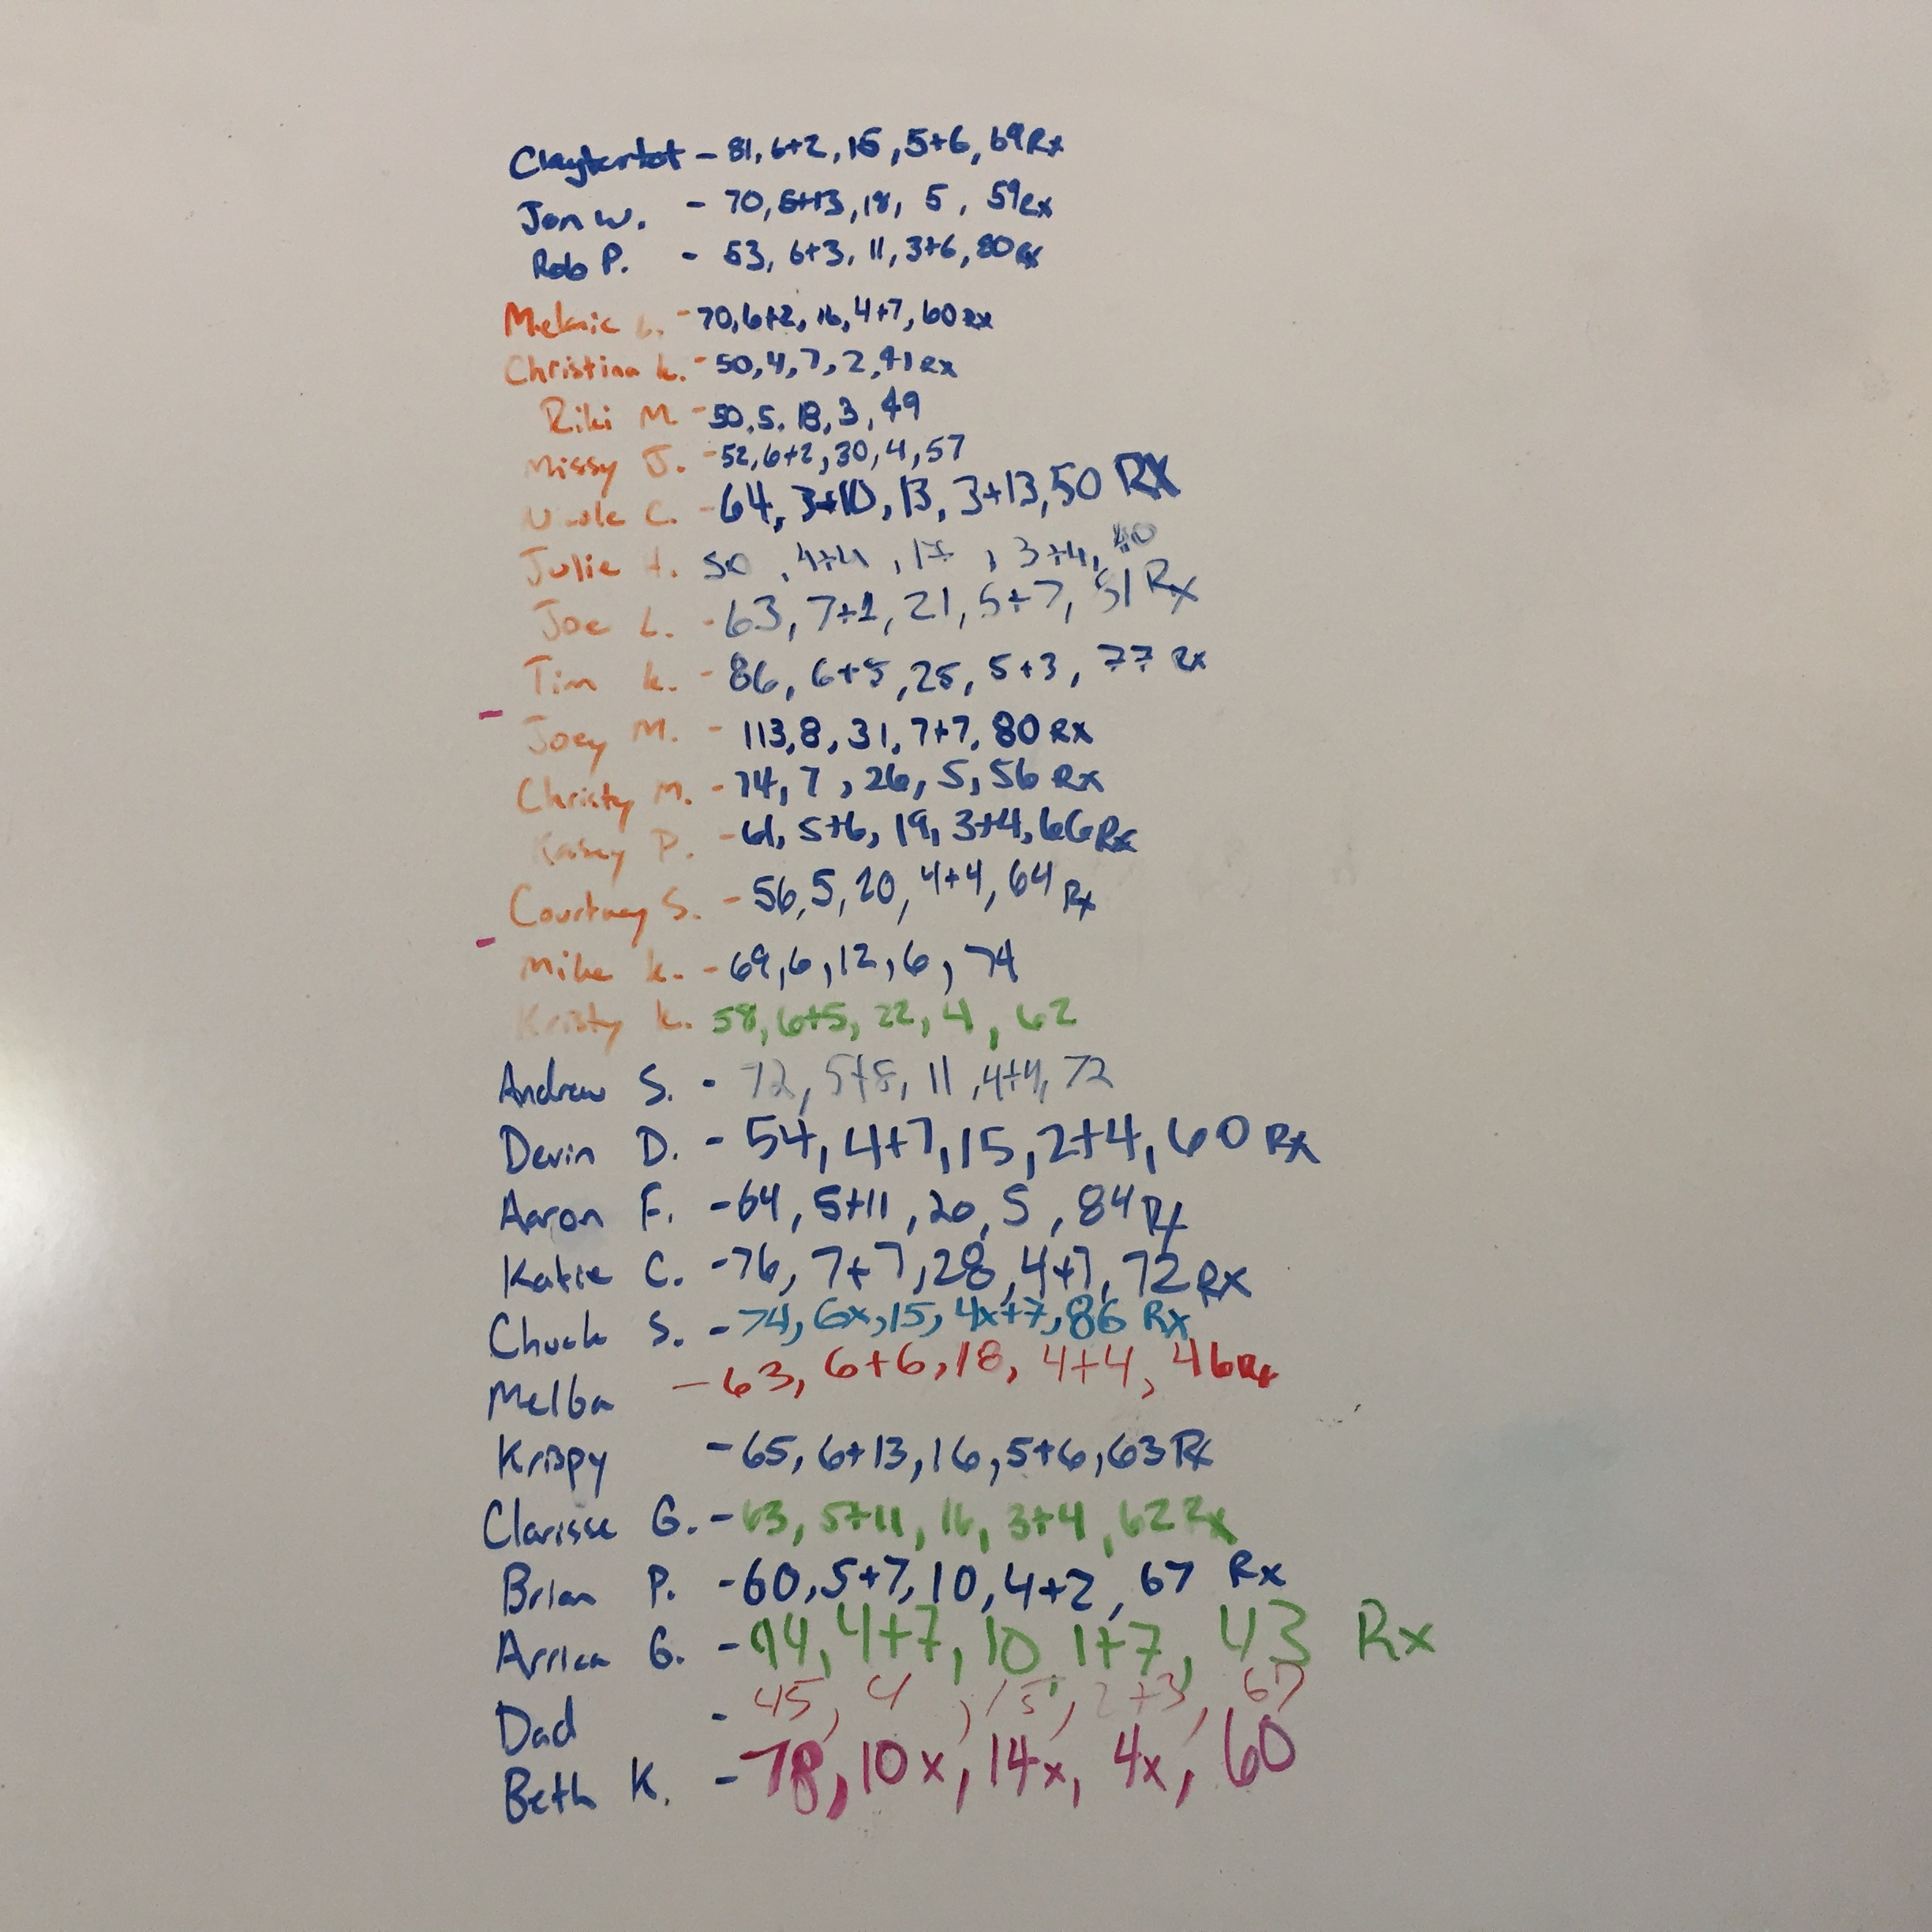 Claytertot - 81, 6+2, 15, 5+6, 69 Rx
Jon W. - 70, 5+13, 18, 5, 59 Rx
Rob P. - 53, 6+3, 11, 3+6, 80 Rx
Melanie - 70, 6+2, 16, 4+7, 60 Rx
Christina K. - 50, 4, 7, 2, 41 Rx
Riki M - 50, 5, 18, 3, 49
Missy J. - 52, 6+2, 30, 4, 57
Nicole C. - 64, 3+10, 13, 3+13, 50 RX
Julie H. 50, 4+4, 17, 3+4, 40
Joe L. - 63, 7+1, 21, 5+7, 51 Rx
Tim K. - 86, 6+5, 25, 5+3, 77 Rx
- Joey M. - 113, 8, 31, 7+7, 80 Rx
Christy M. - 74, 7, 26, 5, 56 Rx
Kasey P. - 61, 5+6, 19, 3+4, 66 Rx
Courtney S. - 56, 5, 20, 4+4, 64 Rx
- Mike K. - 69, 6, 12, 6, 74
Kristy K. 58, 6+5, 22, 4, 62
Andrew S. - 72, 5+8, 11, 4+4, 72
Devin D. - 54, 4+7, 15, 2+4, 60 Rx
Aaron F. - 64, 5+11, 20, 5, 84 Rx
Katie C. - 76, 7+7, 28, 4+7, 72 Rx
Chuck S. - 74, 6x, 15, 4x+7, 86 Rx
Melba - 63, 6+6, 18, 4+4, 46 Rx
Krispy - 65, 6+13, 16, 5+6, 63 Rx
Clarisse G. - 63, 5+11, 16, 3+4, 62 Rx
Brian P. - 60, 5+7, 10, 4+2, 67 Rx
Arrica G. - 44, 4+7, 10 1+7, 43 Rx
Dad - 45, 4, 15, 2+3, 67
Beth K. - 78, 10x, 14x, 4x, 60